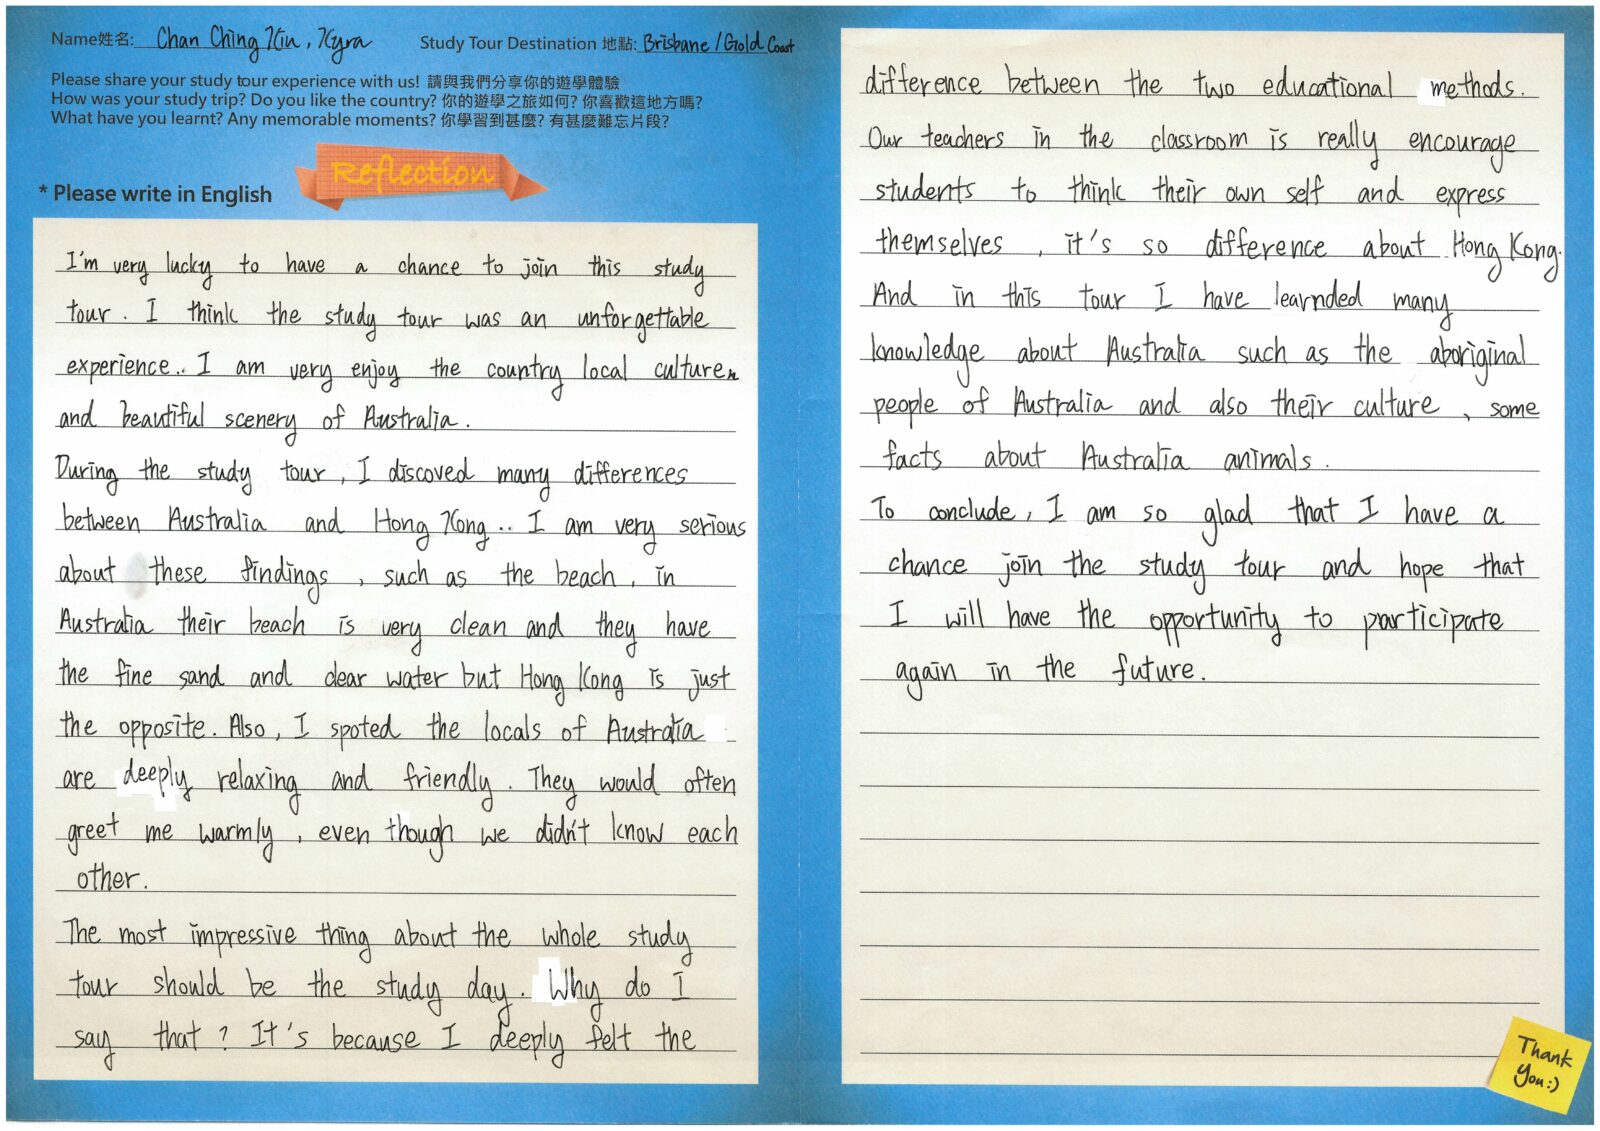 Name姓名: Chan Ching Kiu, Kyra
Study Tour Destination 地點: Brisbane / Gold Coast
Please share your study tour experience with us! 請與我們分享你的遊學體驗
How was your study trip? Do you like the country? 你的遊學之旅如何? 你喜歡這地方嗎?
What have you learnt? Any memorable moments? 你學習到甚麼? 有甚麼難忘片段?
Reflection
* Please write in English
I'm very lucky to have a chance to join this study
tour. I think the study tour was an unforgettable
experience.. I am very enjoy the country local culture
and beautiful scenery of Australia.
During the study tour, I discoved many differences
between Australia and Hong Kong.. I am very serious
about these findings, such as the beach, in
Australia their beach is very clean and they have
the fine sand and clear water but Hong Kong is just
the opposite. Also, I spoted the locals of Australia
are deeply relaxing and friendly. They would often
greet me warmly, even though we didn't know each
other.
The most impressive thing about the whole study
tour should be the study day. Why do I
say that? It's because I deeply felt the
difference between the two educational methods.
Our teachers in the classroom is really encourage
students to think their own self and express
themselves, it's so difference about Hong Kong.
And in this tour I have learnded many
knowledge about Australia such as the aboriginal
people of Australia and also their culture, some
facts about Australia animals.
To conclude, I am so glad that I have a
chance join the study tour and hope that
I will have the opportunity to participate
again in the future.
Thank
You:)